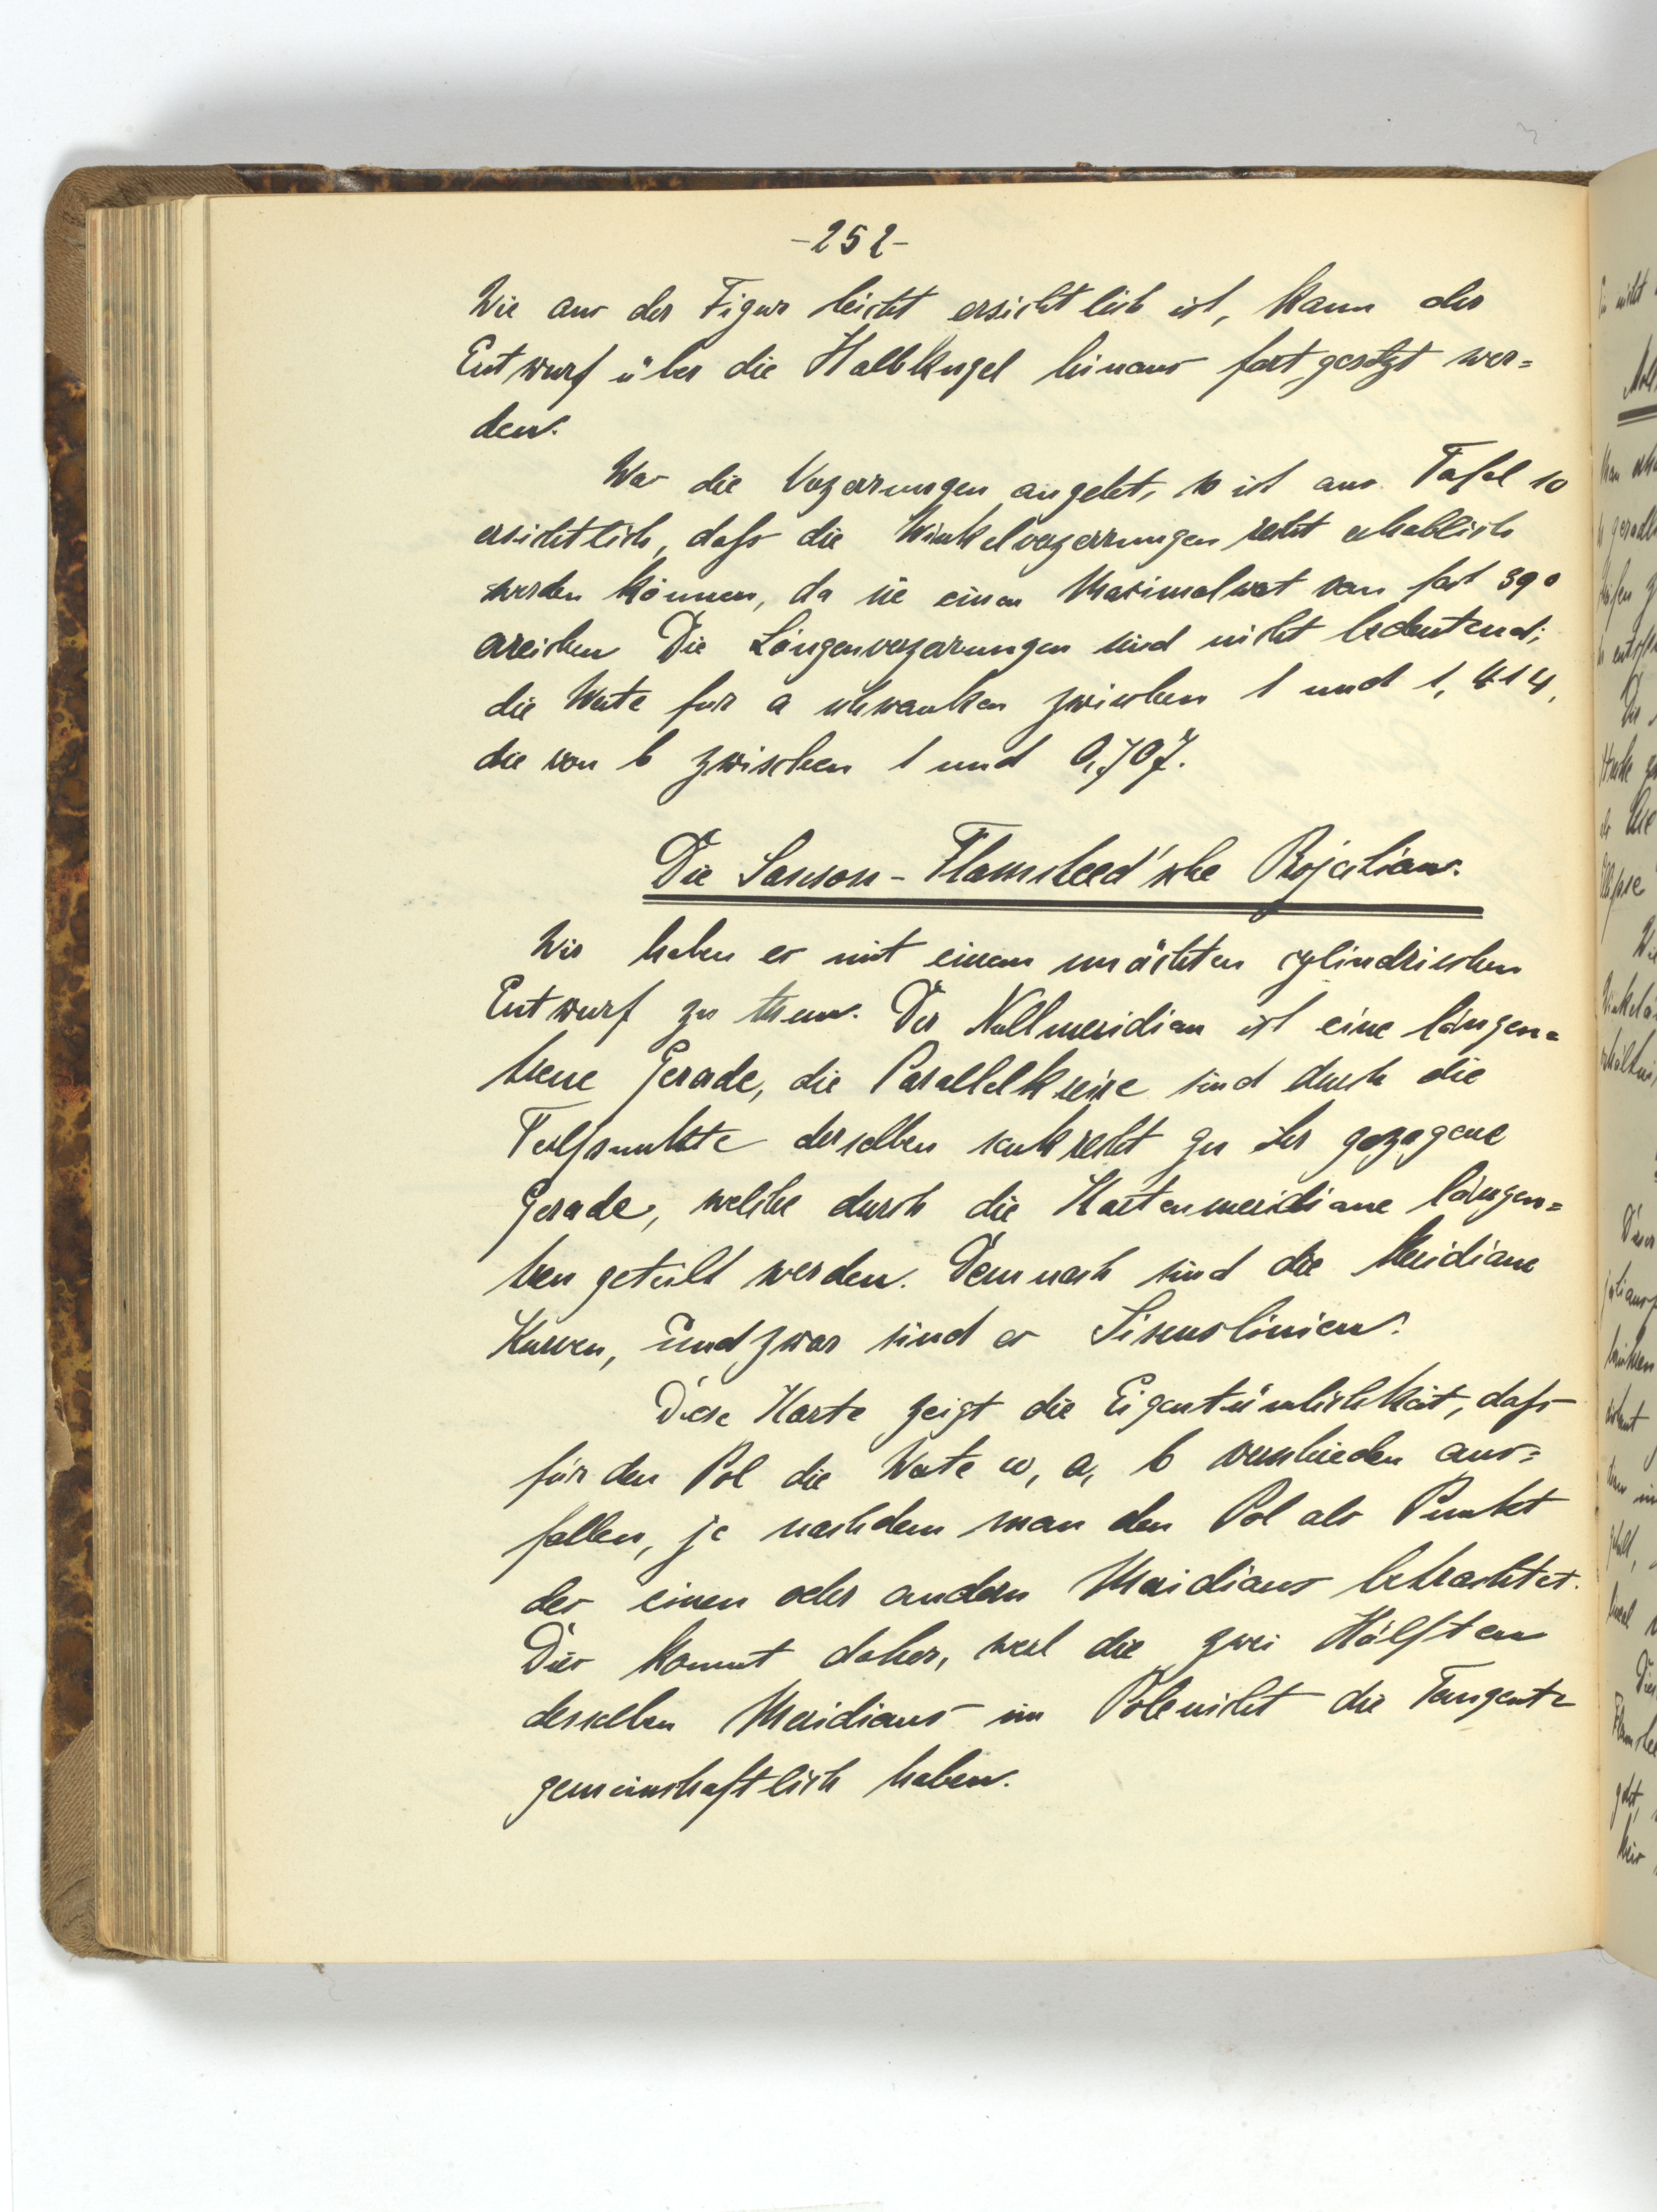 -252-
Wie aus der Figur leicht ersichtlich ist, kann der
Entwurf über die Halbkugel hinaus fortgesetzt wer=
den.
Was die Verzerrungen angeht, so ist aus Tafel 10
ersichtlich, dafs die Winkelverzerrungen recht erheblich
werden können, da sie einen Maximalwert von fast 39°
erreichen Die Längenverzerrungen sind nicht bedeutend;
die Werte für a schwanken zwischen 1 und 1,414,
die von b zwischen 1 und 0,707.
Die Sanson-Flamsteed'sche Projektion.
Wir haben es mit einem unächten cylindrischen
Entwurf zu thun. Der Nullmeridian ist eine längen=
treue Gerade, die Parallelkreise sind durch die
Teilpunkte derselben senkrecht zu ihr gezogene
Gerade, welche durch die Kartenmeridiane längen=
treu geteilt werden. Demnach sind die Meridiane
Kurven, und zwar sind es Sinuslinien.
Diese Karte zeigt die Eigentümlichkeit, dafs
für den Pol die Werte ω, a, b verschieden aus=
fallen, je nachdem man den Pol als Punkt
des einen oder andern Meridians betrachtet.
Dies kommt daher, weil die zwei Hälften
desselben Meridians im Pole nicht die Tangente
gemeinschaftlich haben.